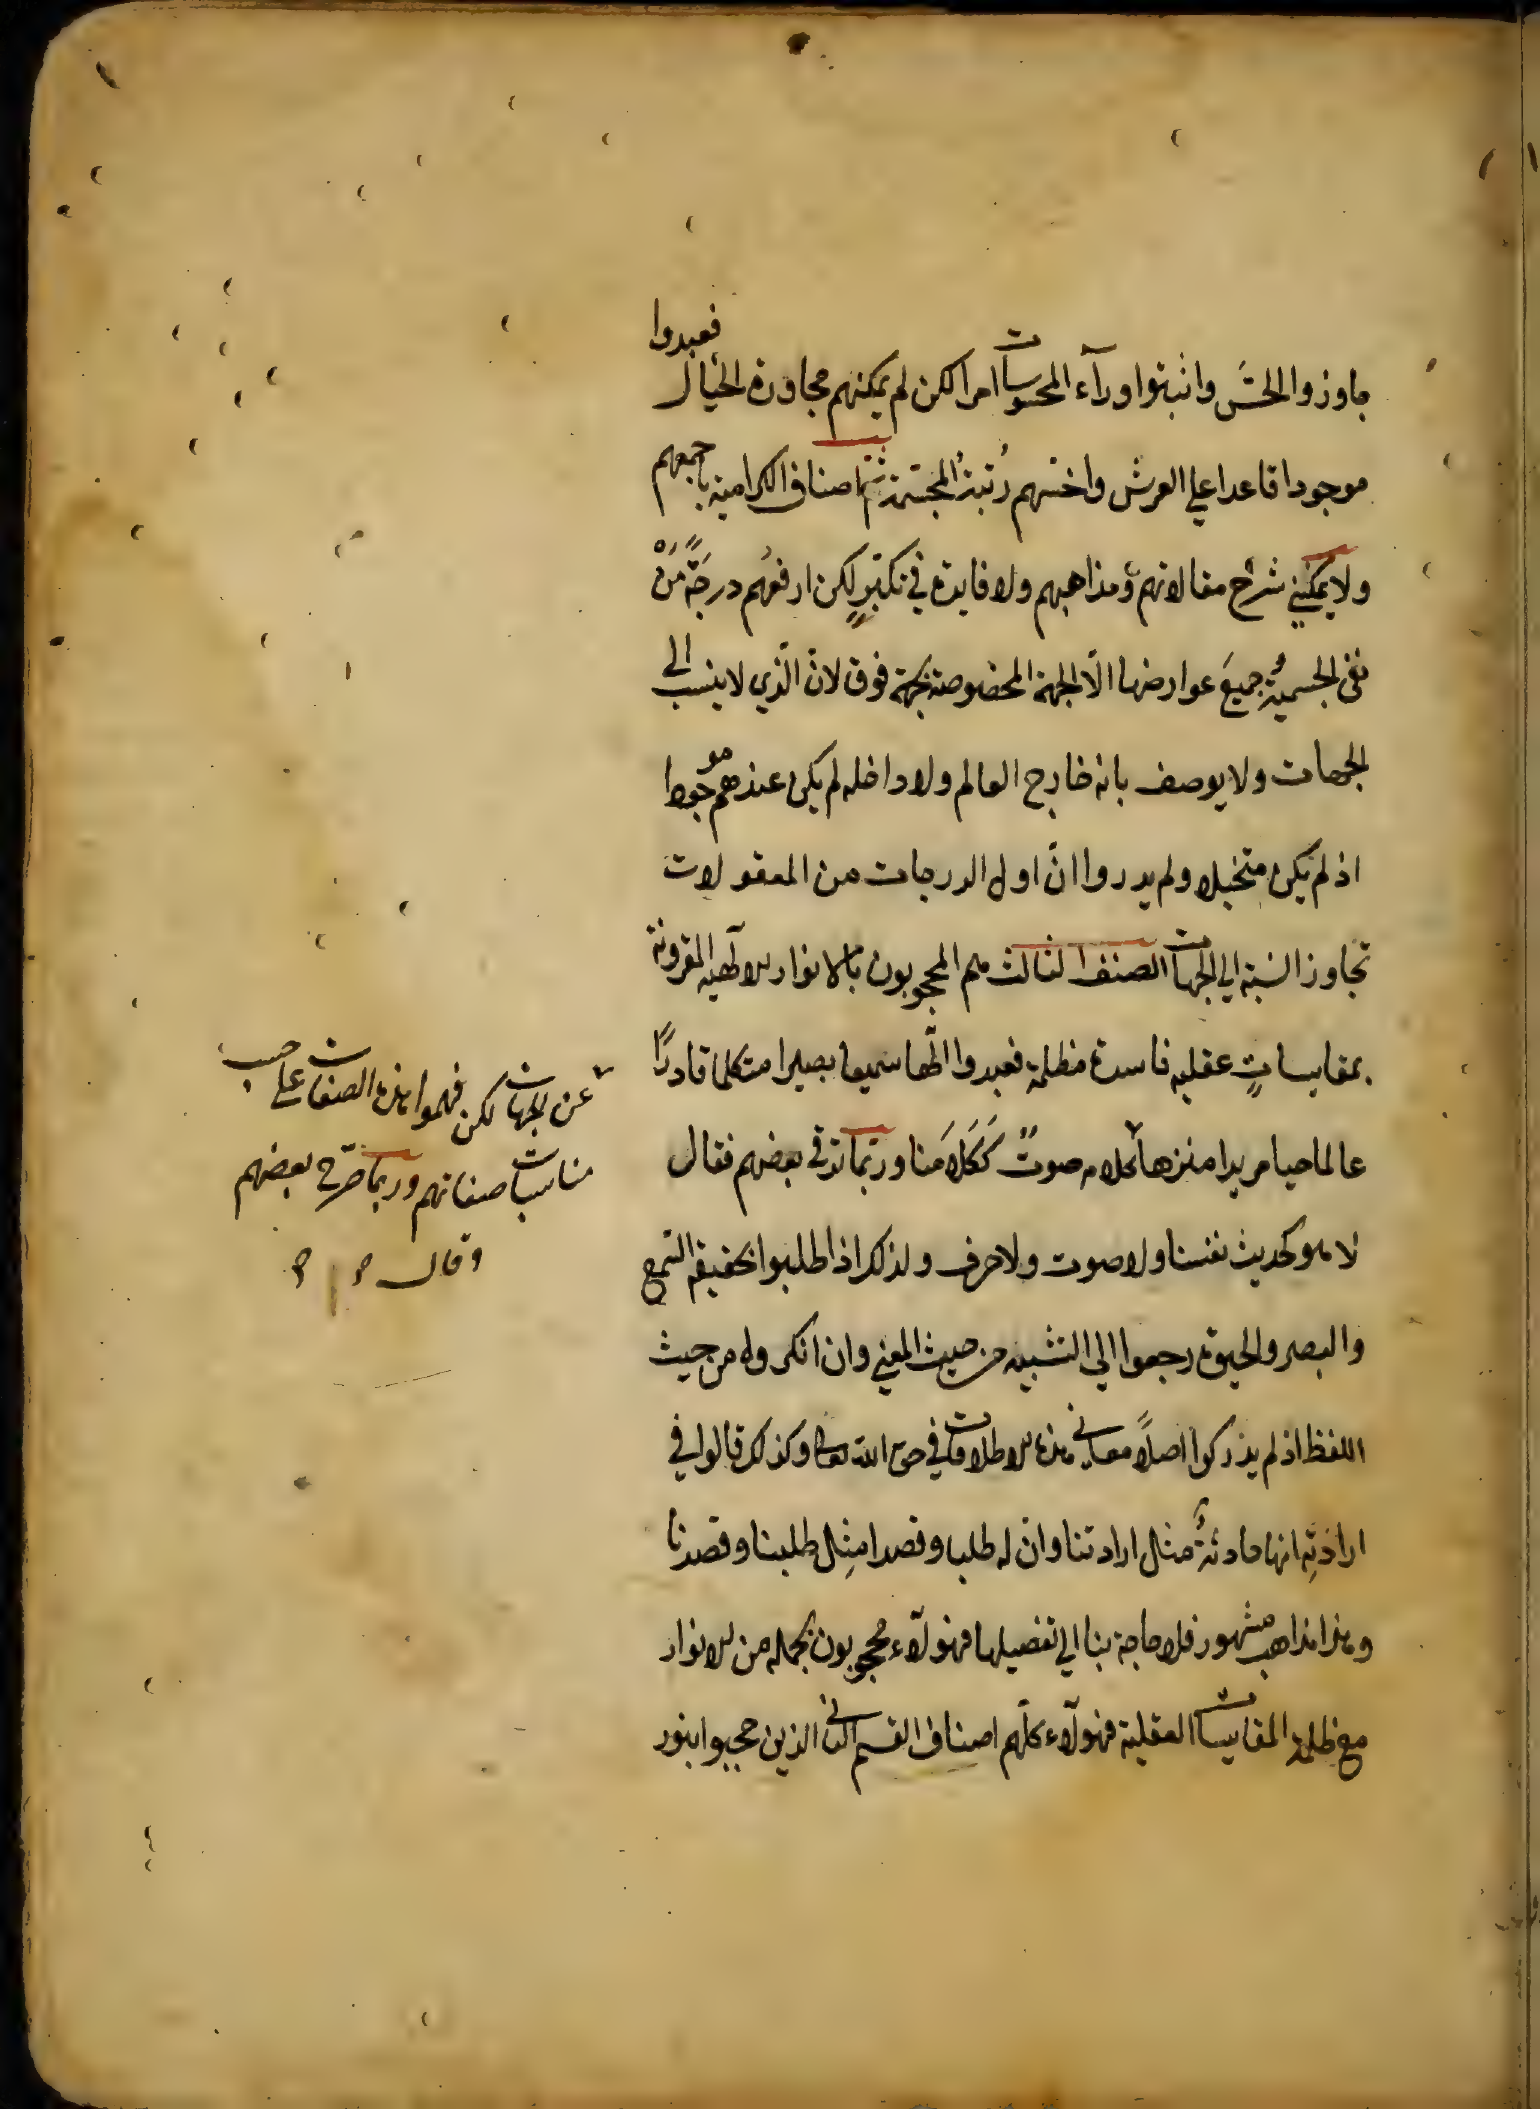 جاوزوا الحسّ واثبتوا ورآء المحسوسات امرا لكن لم يمكنهم مجاوزة الخيال فعبدوا
موجودا قاعدا علي العرش واخسهم رُتبةُ المجسّمة ثمّ اصناف الكرامية باجمعهم
ولا يمكنني شرْح مقالاتهم ومذاهبهم ولا فايدة في تكثيرٍ لكن ارفعُهم درجَةً مَنْ
نفي الجسميّة وجميعَ عوارضها الّا الجهة المخصوصة بجهة فوق لانّ الّذي لا ينسب الي
الجهات ولا يوصف بانه خارج العالم ولا داخله لم يكن عندهم موجودا
اذ لم يكن متخيلا ولم يدروا انّ اول الدرجات من المعقولات
تجاوز النسبة الي الجهات الصنف الثالث هم المحجوبون بالانوار الالٓهيه المقرونة
بمقايساتٍ عقليه فاسدة مظلمة فعبدوا الٓها سميعا بصيرا متكلما قادرًا
عالما حيا مريدا منزها كلامه صوتٌ ككَلَامَنا وربّما ترقي بعضهم فقال
لا هو كحديث نفسنا ولا صوت ولا حرف ولذلك اذا طلبوا بحقيقه السّمع
والبصر والحيوة رجعوا الي التشبيه من حيث المعني وان انكروه من حيث
اللفظ اذ لم يدركوا اصلًا معاني هذه الاطلاقات في حق الله تعالى وكذلك قالوا في
ارادتِه انها حادثةٌ مثل ارادتنا وانّ له طلبا وقصدا مثِل طلبنا وقصدنا
وهذا مذاهب مشهور فلا حاجة بنا الي تفصيلها فهولآء محجوبون بجمله من الانوار
مع ظلمة المقايسات العقلية فهولآء كلّهم اصناف القسم الثاني الذين حجبوا بنور
عن الجهات لكن فهموا هذه الصفات علي حسب
مناسبات صفاتهم وربّما صرّح بعضهم
وقال